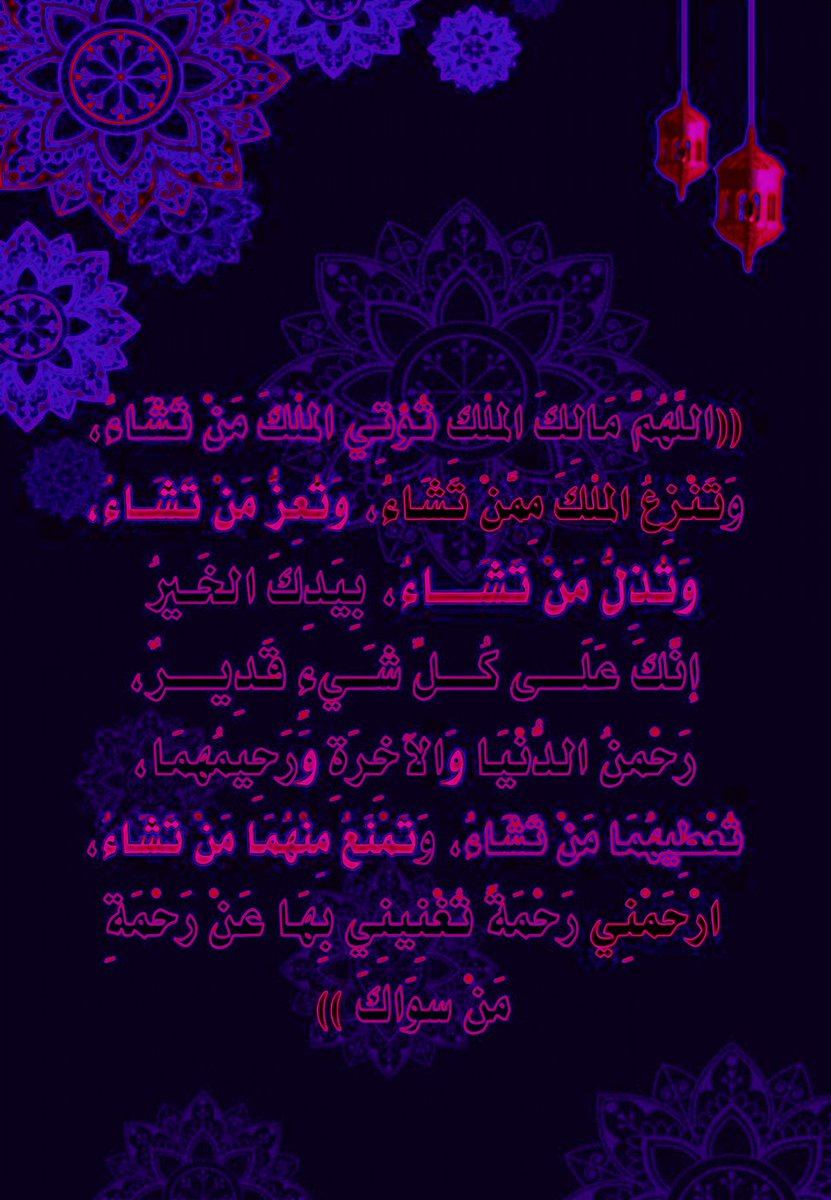 ((اللَّهُمَّ مَالكَ الملْك تُؤتي الملْكَ مَنْ تَشَاءُ،
وَتَنْزِعُ الملْكَ ممَّنْ تَشَاءُ، وَتُعِزُّ مَنْ تَشَاءُ،
وَتُذِلُّ مَنْ تَشَاءُ، بِيَدِكَ الخَيرُ
إنَّكَ عَلَى كُلّ شَيءٍ قَدِيرٌ،
رَحْمنُ الدُّنْيَا وَالآخرَة وَرَحيمُهمَا،
تُعْطِيهُمَا مَنْ تَشَاءُ، وَتمْنَعُ مِنْهُمَا مَنْ تَشَاءُ،
ارْحَمْنِي رَحْمَةً تُغْنِينِي بِهَا عَنْ رَحْمَةِ
مَنْ سوَاكَ ))